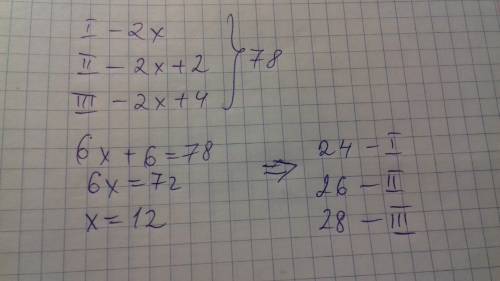 I – 2x
II – 2x+2 } 78
III – 2x+4
6x+6=78
6x=72
x=12
⇒
24 – I
26 – II
28 – III